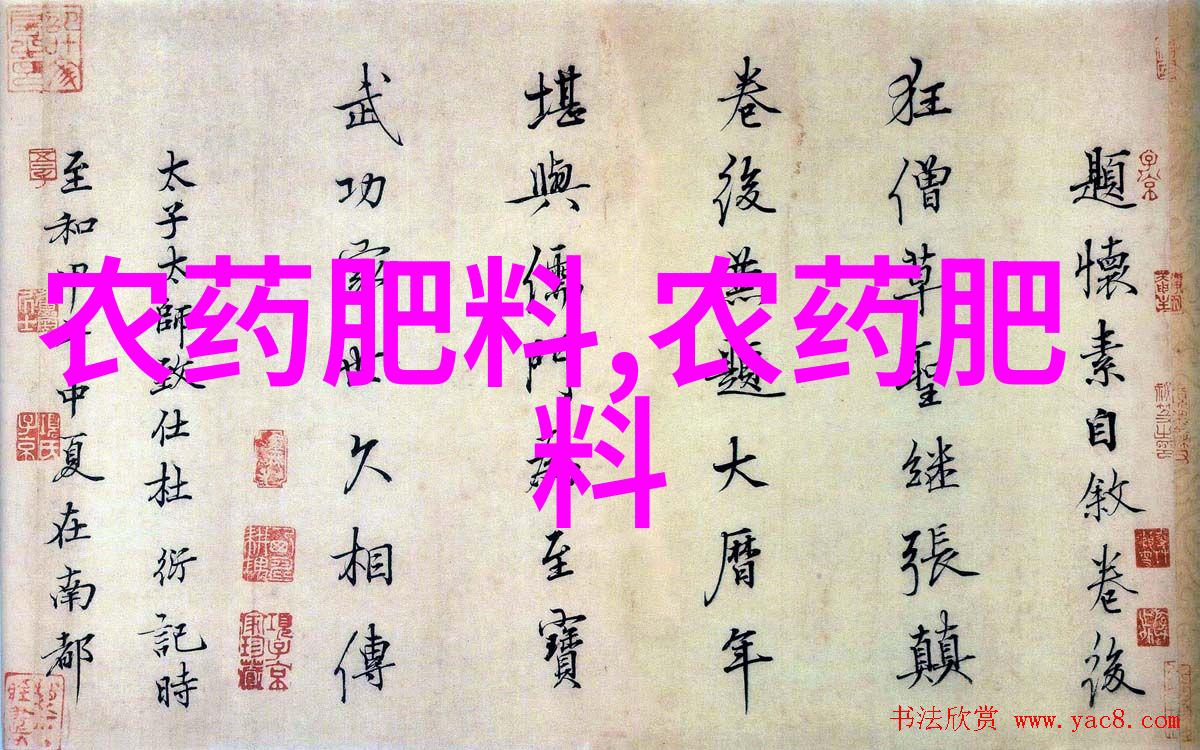 題懷素自敘卷後
狂僧草聖継張顛
卷後兼題大曆年
堪與儒門為至寶
武功家世久相傳
太子太師致仕杜 衍記時
至和甲中夏在南都
农药肥料,农药肥
料
书法欣赏 www.yac8.com